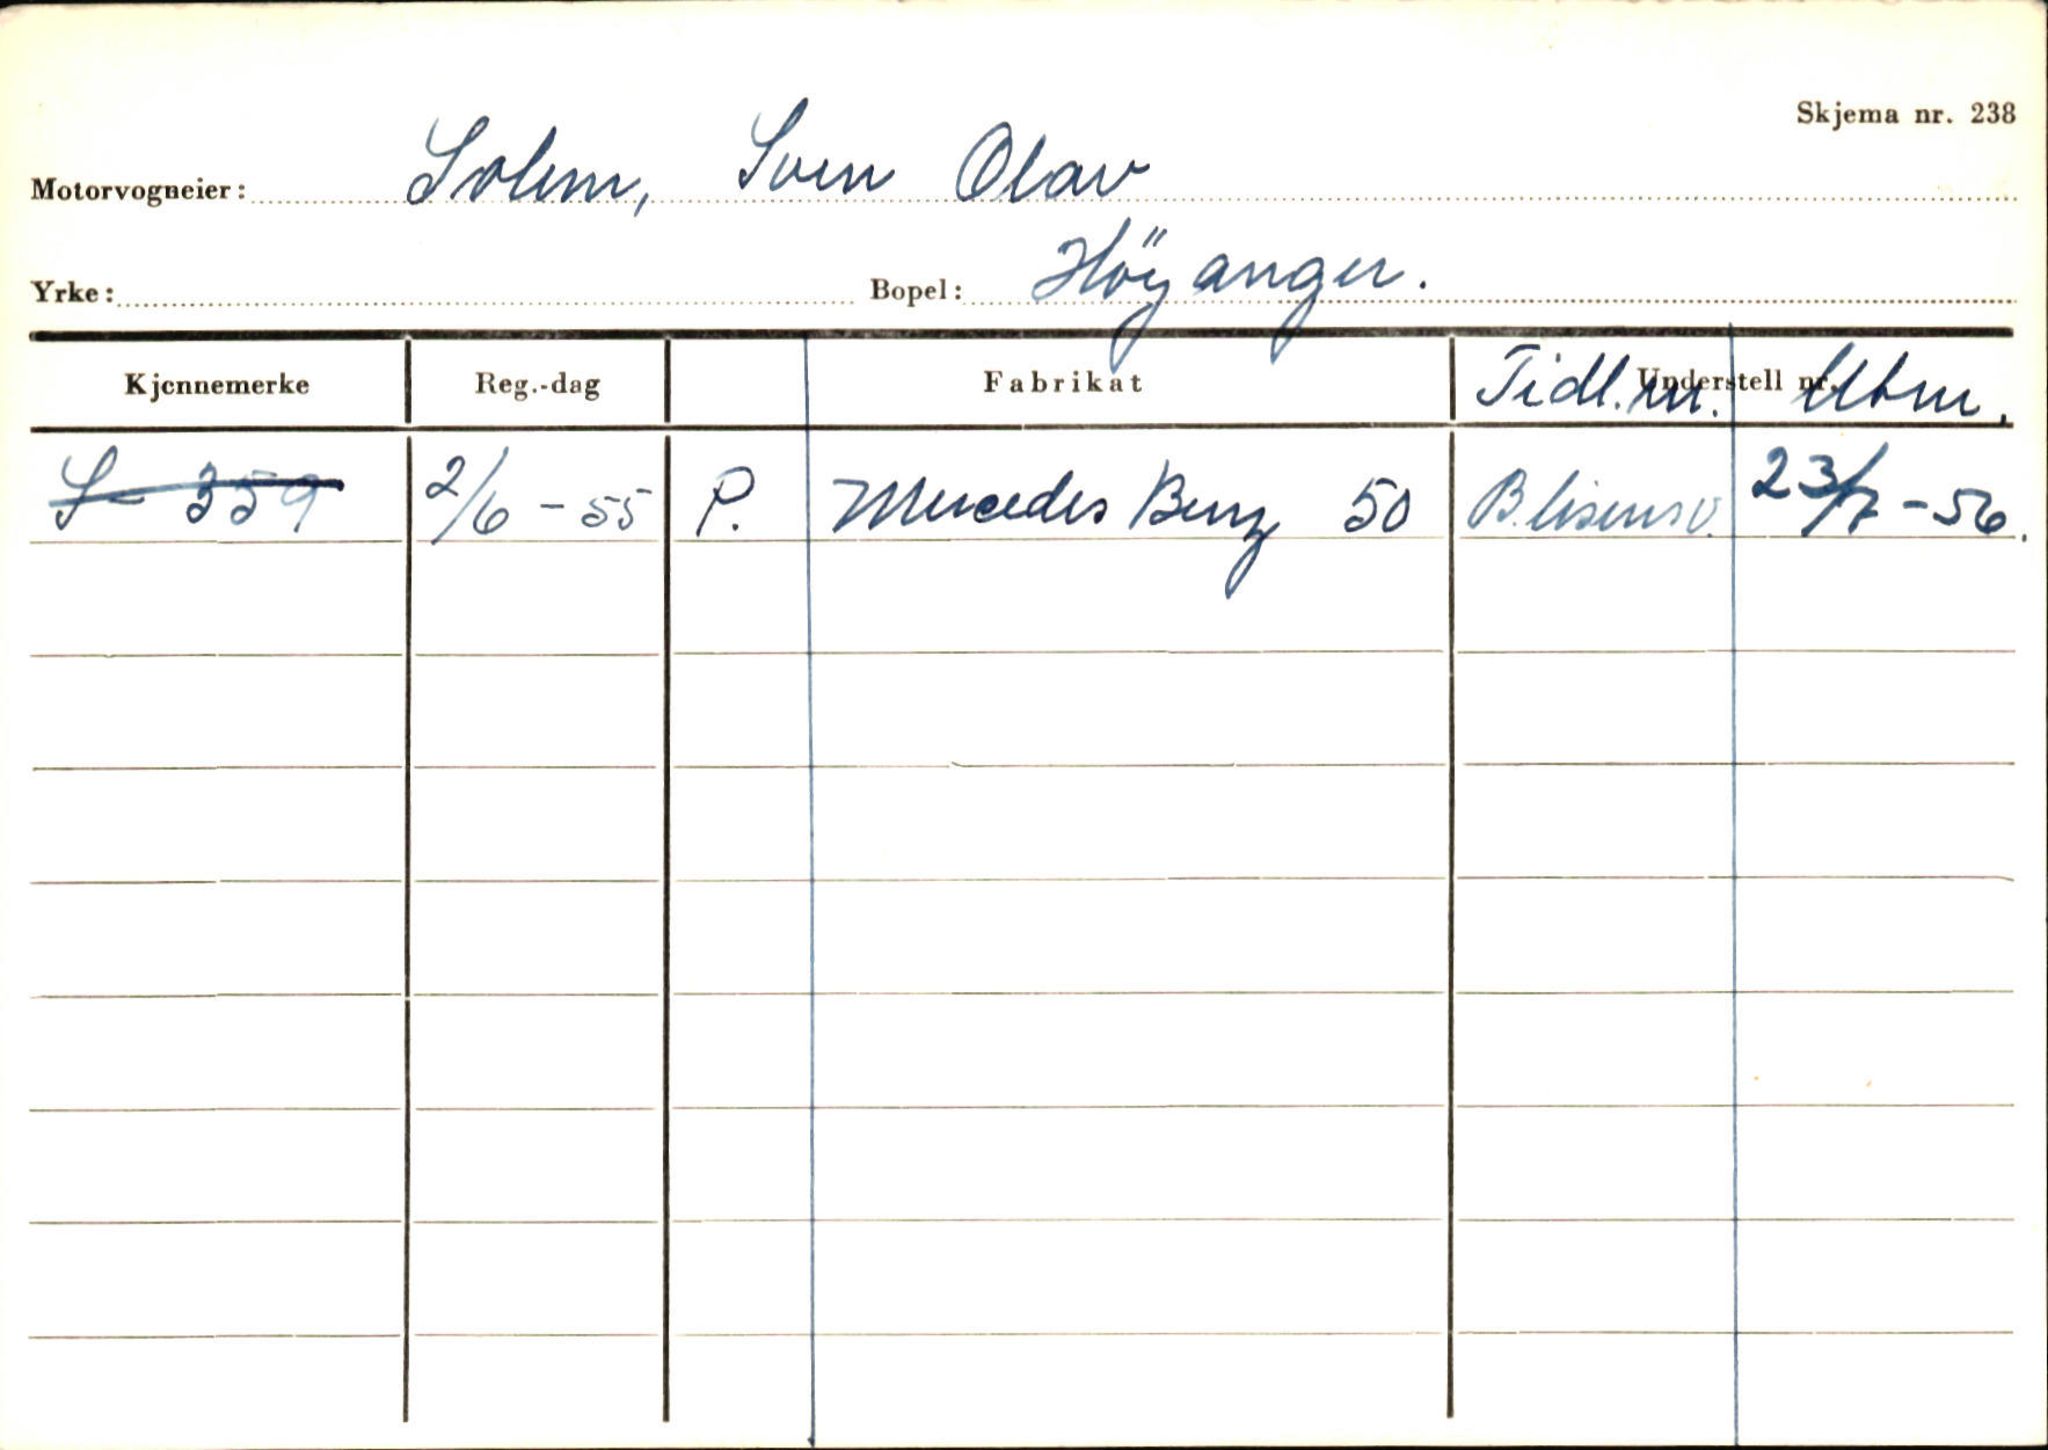 Skjema nr. 238
Motorvogneier: Solem, Sven Olav
Yrke: Bopel: Höyanger.
Kjennemerke Reg.-dag Fabrikat Understell nr. Tidl. nr. Utm.
S- 359 2/6 - 55 P. Mercedes Benz 50 B. lisensv. 23/7 - 56.